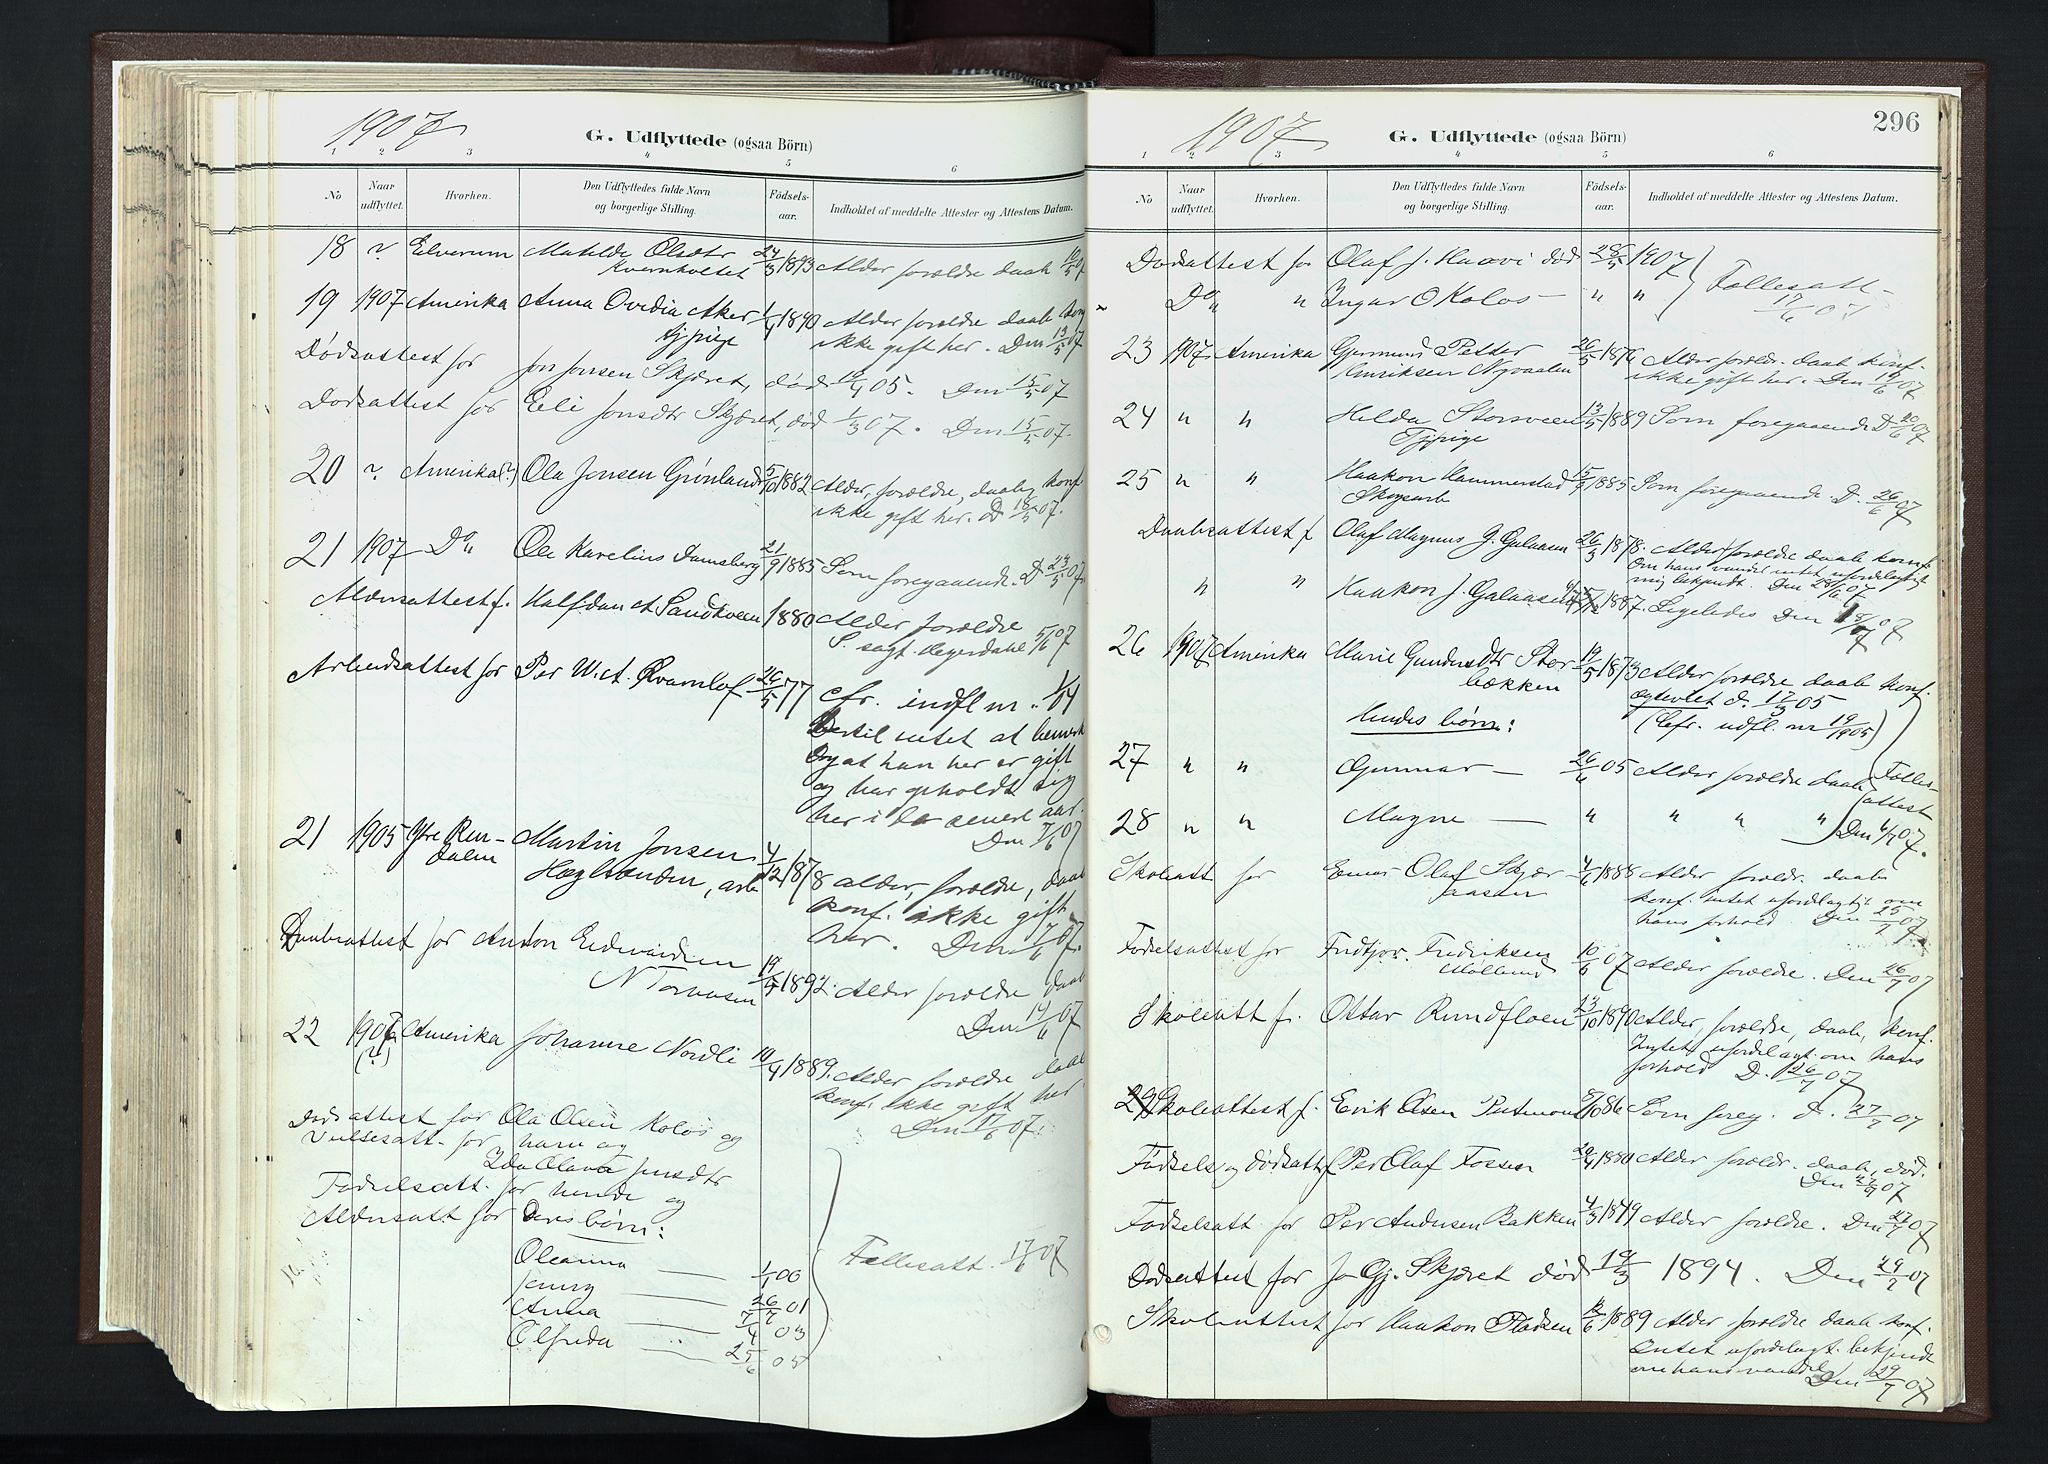 1907
G. Udflyttede (ogsaa Börn)
1 2 3 4 5 6
No
Naar udflyttet.
Hvorhen.
Den Udflyttedes fulde Navn og borgerlige Stilling.
Födsels-aar.
Indholdet af meddelte Attester og Attestens Datum.
18 Elverum Mathilde Olsdtr 24/3 1893 Alder forældre daab 10/5 07
19 1907 Amerika Anna Ovidia Aker 1890 Alder forældre daab
tjpige ikke gift her. Den 13/5 07
Dødsattest for Jon Jonsen Skjæret, død 05. Den 15/5 07
Dødsattest for Eli Jonsdtr Skjæret, død 1/3 07. Den 15/5 07.
20 Amerika(?) Ola Jonsen Grønland 5/10 1882 Alder, forældre, daab, konf
ikke gift her. D 18/5 07.
21 1907 Do Ole Karelius 21/9 1885 Som foregaaende. D 23/5 07
Aldersattest f. Halfdan A. Sandkveen 1880 Alder forældre
5/6 07
Per W. A. 26/5 77 cfr. indfl nr.
intet at bemerk
at han her er gift
og har opholdt sig
her i de senere aar.
Den 7/6 07
21 1905 Ytre Ren- Martin Jonsen 4/12 1878 alder, forældre, daab
dalen arb konf. ikke gift
her. Den 07.
Daabsattest for Anton Edvardsen
1892. Alder forældre daab
Den 14/6 07
22 1907 Amerika Johanne Nordli 10/4 1889. Alder forældre daab
(?) konf. ikke gift her
Den 17/6 07.
Dødsattest for Ola Olsen Koløs og
Vielsesatt. for ham og
Ida Olava Jensdtr
Fødselsatt. for hende og
Aldersatt for Deres børn:
Oleanna 1/1 00
Jenny 26/7 01
Anna 7/4 03
Olfrida 25/6 05
Fellesatt. 17/6 07
1907
296
G. Udflyttede (ogsaa Börn)
1 2 3 4 5 6
No
Naar udflyttet.
Hvorhen.
Den Udflyttedes fulde Navn og borgerlige Stilling.
Födsels-aar.
Indholdet af meddelte Attester og Attestens Datum.
Dødsattest for Olaf J. Haavi død 28/5 1907
Do " Ingar O Koløs — " " Fellesatt— 17/6 07
23 1907 Amerika Gjermund Petter 26/5 1876 Alder forældr. daab konf.
Henriksen Nyvaalen ikke gift her. Den 19/6 07
24 " " Hilda Storsveen 13/5 1889 Som foregaaende D 20/6 07
Tjpige
25 " " Haakon Hammerstad 15/9 1885 Som foregaaende. D. 26/6 07
Skogsarb
Daabsattest f Olaf Magnus J. Galaasen 26/3 1878. Alder forældre daab konf.
Om hans vandel intet ufordelagtigt
mig bekjendt. Den 07
" " Haakon J. Galaasen 1887. Ligeledes Den 07
26 1907 Amerika Marie Gundersdtr Stor 19/5 1873 Alder forældre daab konf.
bækken
05
Hendes børn: (cfr. udfl. nr 19/1905)
27 " " Gunnar — 26/6 05 Alder forældre daab Felles-
attest
28 " " Magne — " " " " Den 07.
Skoleatt for Einar Olaf Skjær 4/6 1888 Alder forældr. daab
aasen konf. intet ufordelagtigt om
hans forhold Den 25/7 07
Fødselsattest for Fridtjov. Fredriksen 10/6 07 Alder forældre. Den 26/7 07
Skoleatt f. Ottar Rundfloen 23/10 1890 Alder, forældre, daab, konf.
Intet ufordelagt. om hans
forhold D. 26/7 07
Skoleattest f. Erik Olsen 86 Som foreg. D. 27/7 07
Fødsels og dødsatt f Per Olaf Fossen 1880 Alder forældr. daab, død.
Den 07
Fødselsatt for Per Andersen Bakken 4/3 1849 Alder forældre. Den 27/7 07
Dødsattest for Jo Gj. Skjæret død 19/3 1894. Den 29/7 07
Skoleattest for Haakon Pladsen 1889 Alder forældre daab konf.
Intet ufordelagt. bekjendt
om hans vandel
Den 29/7 07